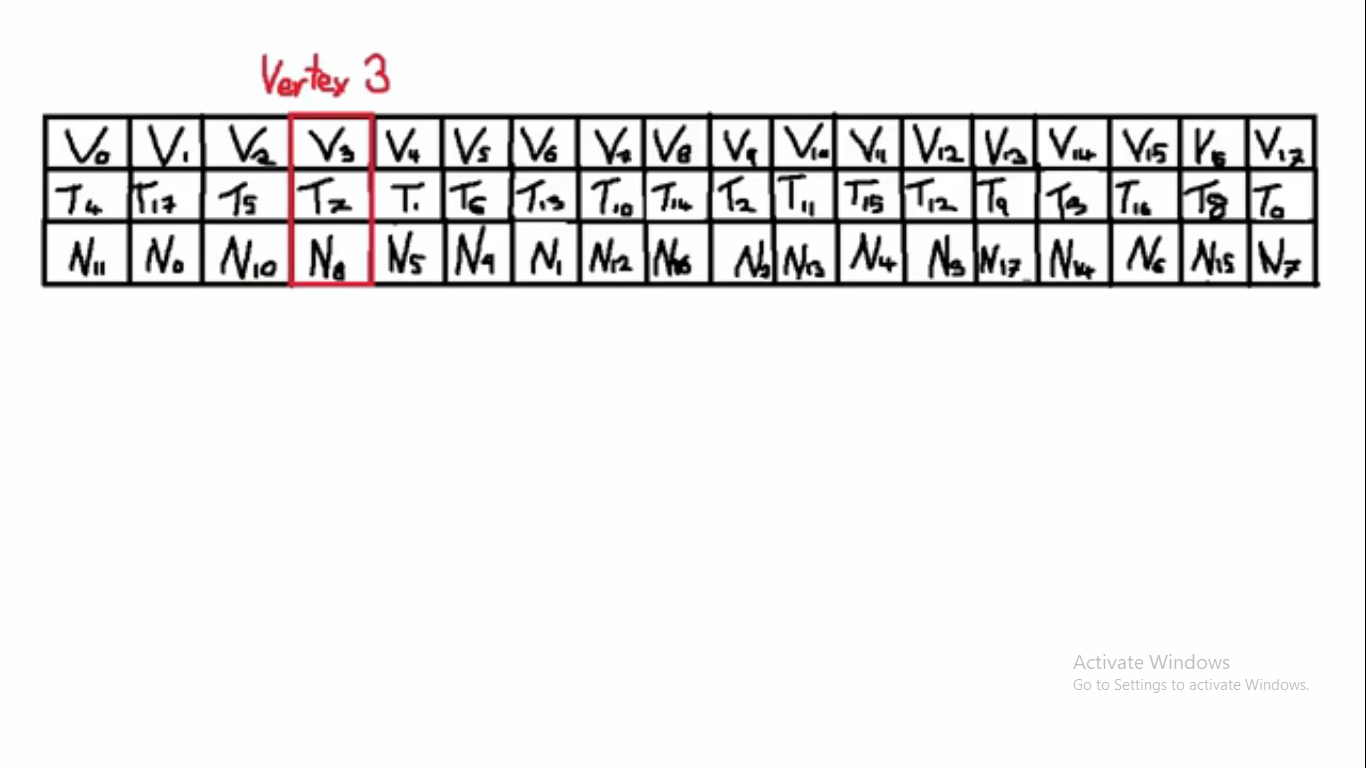 Vertex 3
V0 V1 V2 V3 V4 V5 V6 V7 V8 V9 V10 V11 V12 V13 V14 V15 V16 V17
T4 T17 T5 T7 T1 T6 T13 T10 T14 T2 T11 T15 T12 T9 T3 T16 T8 T0
N11 N0 N10 N8 N5 N9 N1 N12 N16 N2 N13 N4 N3 N17 N14 N6 N15 N7
Activate Windows
Go to Settings to activate Windows.